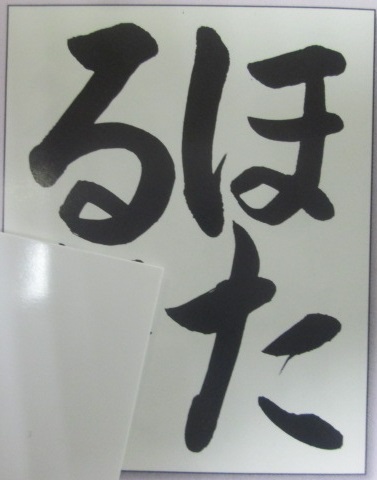 ほた
る